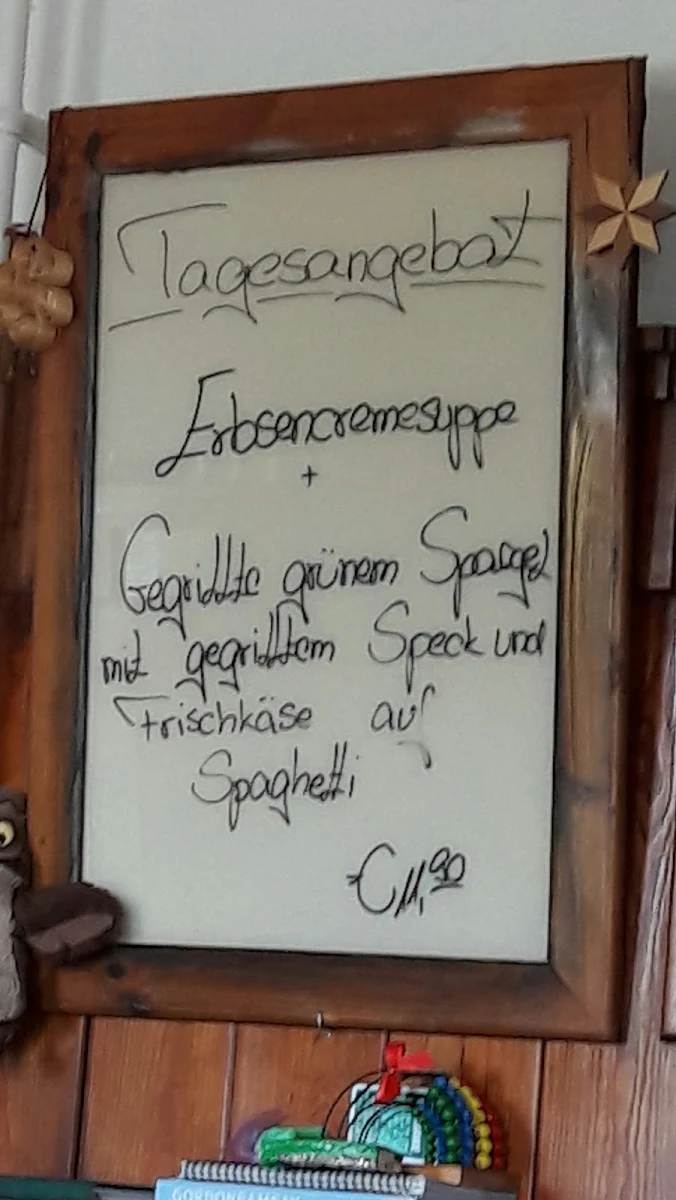 Tagesangebot
Erbsencremesuppe
+
Gegrillte grünem Spargel
mit gegrilltem Speck und
Frischkäse auf
Spaghetti
€11,90